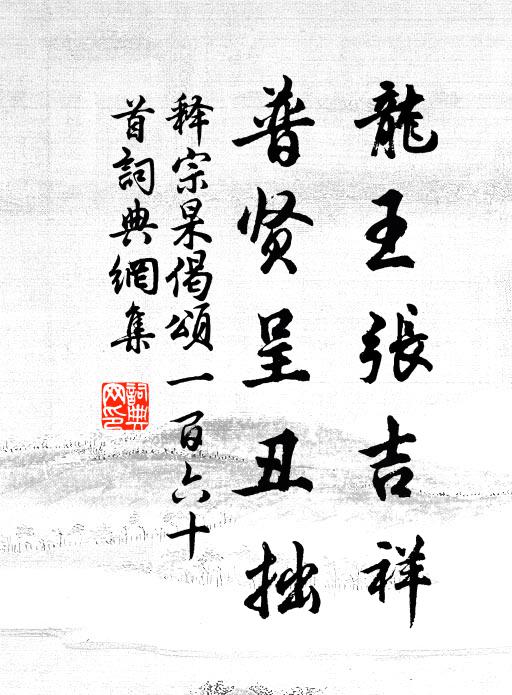 龍王張吉祥
普贤呈丑拙
释宗杲偈頌一百六十
首詞典網集
詞典
网印